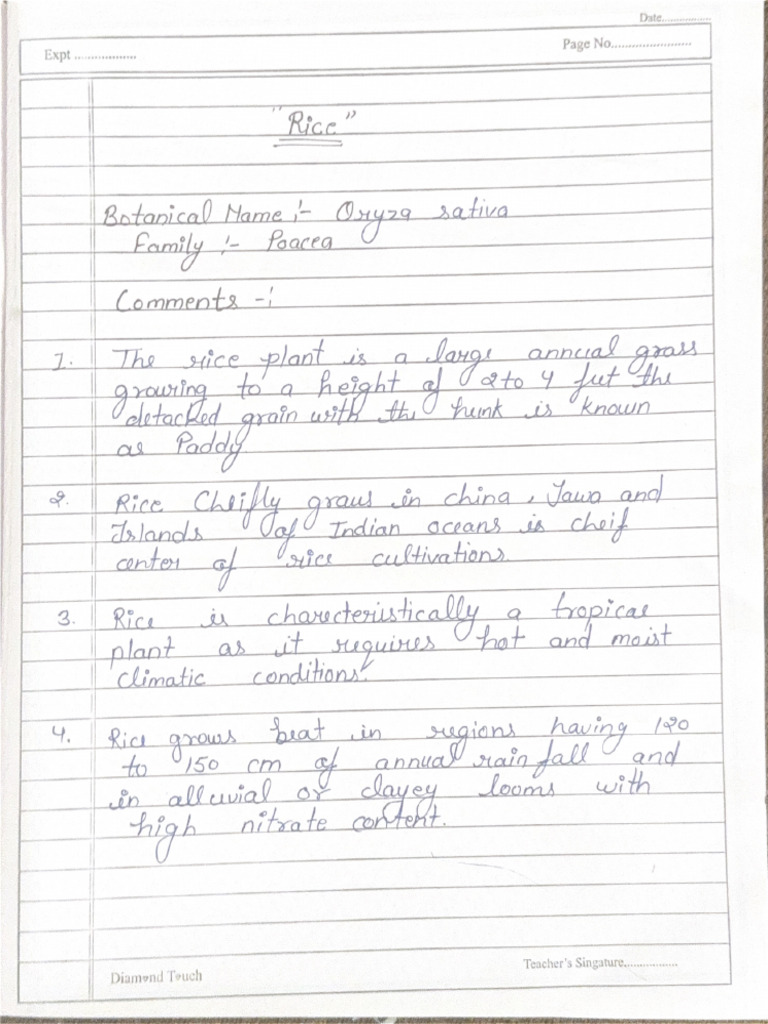 Date................
Expt ..................
Page No.......................
"Rice"
Botanical Name :- Oryza sativa
Family :- Poacea
Comments -:
1. The rice plant is a large annual grass
growing to a height of 2 to 4 fut the
detacked grain with the hunk is known
as Paddy
2. Rice Cheifly graws in china, Jawa and
Islands of Indian oceans is cheif
center of rice cultivations.
3. Rice is charecteristically a tropical
plant as it requires hot and moist
climatic conditions.
4. Rice grows beat in regions having 120
to 150 cm of annual rain fall and
in alluvial or clayey looms with
high nitrate content.
Diamond Touch
Teacher's Singature.................